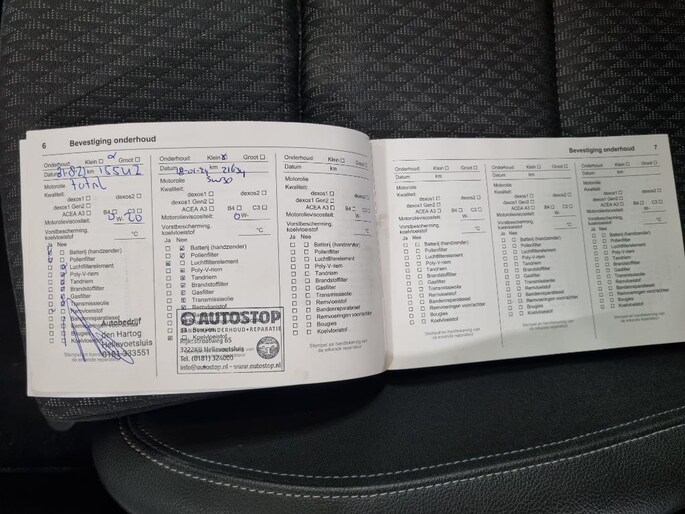 6 Bevestiging onderhoud
Onderhoud: Klein Groot
Datum km
Motorolie
total
Kwaliteit:
dexos1
dexos2
dexos1 Gen2
ACEA A3 B4 C3
Motorolieviscositeit: W-
Vorstbescherming,
koelvloeistof °C
Ja Nee
Batterij (handzender)
Pollenfilter
Luchtfilterelement
Poly-V-riem
Tandriem
Brandstoffilter
Gasfilter
Transmissieolie
Remvloeistof
Autobedrijf
den Hartog
Hellevoetsluis
0181-333551
Onderhoud: Klein Groot
Datum km
5W30
Kwaliteit:
dexos1
dexos2
dexos1 Gen2
ACEA A3 B4 C3
Motorolieviscositeit: 0W-
Vorstbescherming,
koelvloeistof °C
Ja Nee
Batterij (handzender)
Pollenfilter
Luchtfilterelement
Poly-V-riem
Tandriem
Brandstoffilter
Gasfilter
Transmissieolie
Remvloeistof
AUTOSTOP
Hellevoetsluis
Tel. (0181) 324003
info@autostop.nl - www.autostop.nl
Koelvloeistof
Onderhoud: Klein Groot
Datum km
Motorolie
Kwaliteit:
dexos1
dexos2
dexos1 Gen2
ACEA A3 B4 C3
Motorolieviscositeit: W-
Vorstbescherming,
koelvloeistof °C
Ja Nee
Batterij (handzender)
Pollenfilter
Luchtfilterelement
Poly-V-riem
Tandriem
Brandstoffilter
Gasfilter
Transmissieolie
Remvloeistof
Bandenreparatieset
Remvoeringen voor/achter
Bougies
Koelvloeistof
Stempel en handtekening van
de erkende reparateur
Bevestiging onderhoud 7
Onderhoud: Klein Groot
Datum km
Motorolie
Kwaliteit:
dexos1
dexos2
dexos1 Gen2
ACEA A3 B4 C3
Motorolieviscositeit: W-
Vorstbescherming,
koelvloeistof °C
Ja Nee
Batterij (handzender)
Pollenfilter
Luchtfilterelement
Poly-V-riem
Tandriem
Brandstoffilter
Gasfilter
Transmissieolie
Remvloeistof
Bandenreparatieset
Remvoeringen voor/achter
Bougies
Koelvloeistof
Stempel en handtekening van
de erkende reparateur
Onderhoud: Klein Groot
Datum km
Motorolie
Kwaliteit:
dexos1
dexos2
dexos1 Gen2
ACEA A3 B4 C3
Motorolieviscositeit: W-
Vorstbescherming,
koelvloeistof °C
Ja Nee
Batterij (handzender)
Pollenfilter
Luchtfilterelement
Poly-V-riem
Tandriem
Brandstoffilter
Gasfilter
Transmissieolie
Remvloeistof
Bandenreparatieset
Remvoeringen voor/achter
Bougies
Koelvloeistof
Stempel en handtekening van
de erkende reparateur
Onderhoud: Klein Groot
Datum km
Motorolie
Kwaliteit:
dexos1
dexos2
dexos1 Gen2
ACEA A3 B4 C3
Motorolieviscositeit: W-
Vorstbescherming,
koelvloeistof °C
Ja Nee
Batterij (handzender)
Pollenfilter
Luchtfilterelement
Poly-V-riem
Tandriem
Brandstoffilter
Gasfilter
Transmissieolie
Remvloeistof
Bandenreparatieset
Remvoeringen voor/achter
Bougies
Koelvloeistof
Stempel en handtekening van
de erkende reparateur